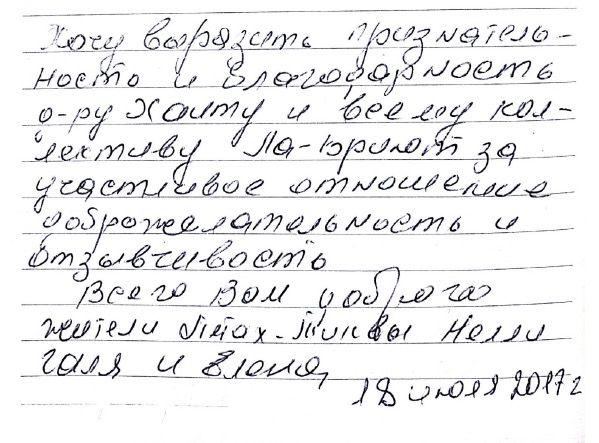 Хочу выразить признатель-
ность и благодарность
д-ру Хаиту и всему кол-
лективу Ла-Бриют за
участливое отношение
доброжелательность и
отзывчивость
Всего Вам доброго
жители Петах-Тиквы Нелли
Галя и Елена,
18 июля 2017 г